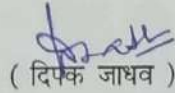 ( दिपक जाधव )